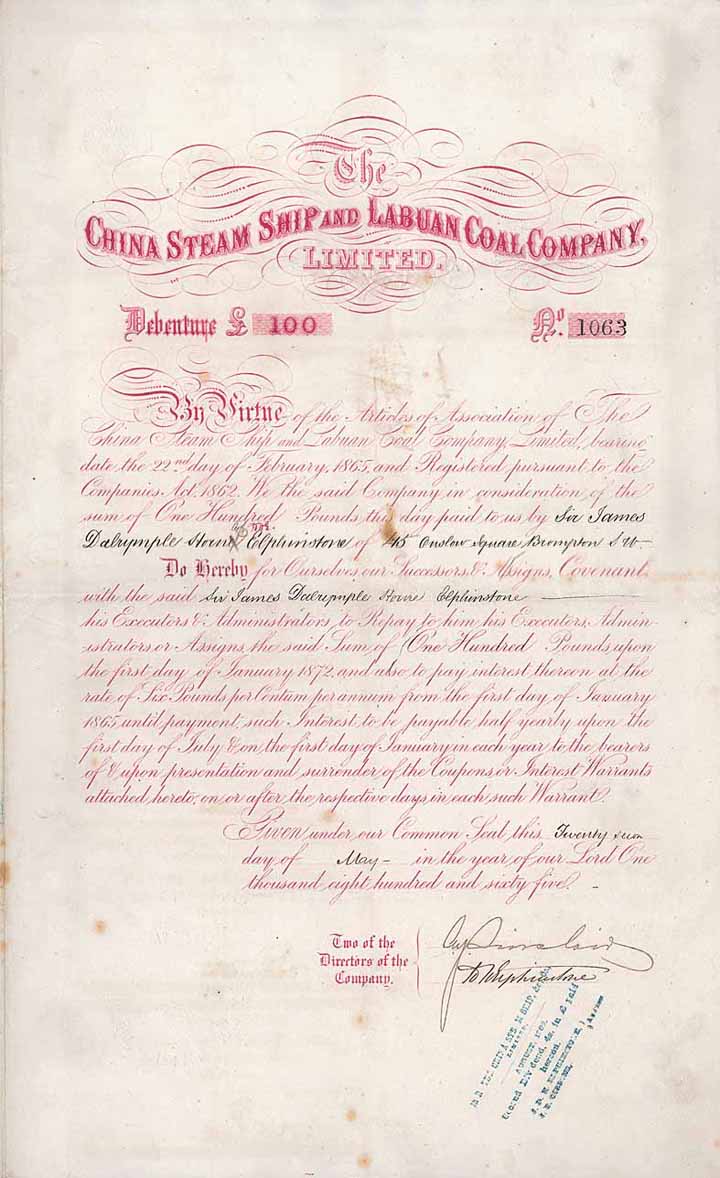 The
CHINA STEAM SHIP AND LABUAN COAL COMPANY,
LIMITED.
Debenture £ 100 No. 1063
By Virtue of the Articles of Association of The
China Steam Ship and Labuan Coal Company, Limited, bearing
date the 22nd day of February, 1865, and Registered pursuant to the
Companies Act, 1862, We the said Company in consideration of the
sum of One Hundred Pounds this day paid to us by Sir James
Dalrymple Horn Elphinstone of 45 Onslow Square Brompton S W
Do Hereby for Ourselves, our Successors & Assigns, Covenant
with the said Sir James Dalrymple Horne Elphinstone
his Executors & Administrators, to Repay to him his Executors, Admin-
istrators, or Assigns, the said Sum of One Hundred Pounds, upon
the first day of January 1872, and also to pay interest thereon at the
rate of Six Pounds per Centum per annum from the first day of January
1865, until payment, such Interest to be payable half yearly upon the
first day of July & on the first day of January in each year to the bearers
of & upon presentation and surrender of the Coupons or Interest Warrants
attached hereto, on or after the respective days in each such Warrant.
Given under our Common Seal this Twenty
day of May in the year of our Lord One
thousand, eight hundred and sixty five.
Two of the
Directors of the
Company.
Elphinstone
CHINA STEAM SHIP,
LIMITED.
Second Dividend, 4s. in £ Paid
hereon.
J. D. H. ELPHINSTONE